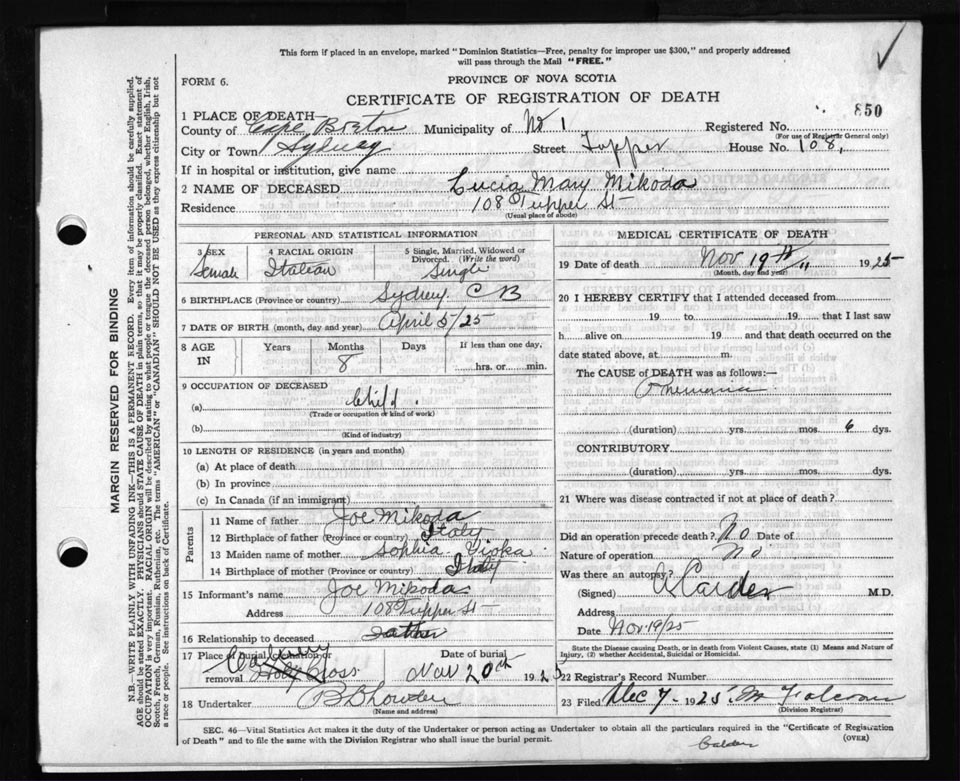 This form if placed in an envelope, marked "Dominion Statistics—Free, penalty for improper use $300," and properly addressed
will pass through the Mail "FREE."
FORM 6.
PROVINCE OF NOVA SCOTIA
CERTIFICATE OF REGISTRATION OF DEATH
850
1 PLACE OF DEATH—
County of Cape Breton Municipality of No 1 Registered No.
(For use of Registrar General only)
City or Town Sydney Street Tupper House No. 108,
If in hospital or institution, give name
2 NAME OF DECEASED Lucia Mary Mikoda
Residence 108 Tupper St
(Usual place of abode)
PERSONAL AND STATISTICAL INFORMATION
3 SEX Female
4 RACIAL ORIGIN Italian
5 Single, Married, Widowed or Divorced. (Write the word) Single
6 BIRTHPLACE (Province or country) Sydney C B
7 DATE OF BIRTH (month, day and year) April 5/25
8 AGE IN Years Months 8 Days If less than one day, hrs. or min.
9 OCCUPATION OF DECEASED
(a) Child
(Trade or occupation or kind of work)
(b)
(Kind of industry)
10 LENGTH OF RESIDENCE (in years and months)
(a) At place of death
(b) In province
(c) In Canada (if an immigrant)
Parents
11 Name of father Joe Mikoda
12 Birthplace of father (Province or country) Italy
13 Maiden name of mother Sophia
14 Birthplace of mother (Province or country) Italy
15 Informant's name Joe Mikoda
Address 108 Tupper St
16 Relationship to deceased Father
17 Place of burial, cremation or removal Holy Cross
Date of burial Nov 20th 1925
18 Undertaker
(Name and address)
MEDICAL CERTIFICATE OF DEATH
19 Date of death Nov 19th 1925
(Month, day and year)
20 I HEREBY CERTIFY that I attended deceased from
19 to 19 that I last saw
h alive on 19 and that death occurred on the
date stated above, at m.
The CAUSE of DEATH was as follows:—
Pnemonia
(duration) yrs. mos. 6 dys.
CONTRIBUTORY
(duration) yrs. mos. dys.
21 Where was disease contracted if not at place of death?
Did an operation precede death? No Date of
Nature of operation No
Was there an autopsy?
(Signed) M.D.
Address
Date Nov 19/25
State the Disease causing Death, or in death from Violent Causes, state (1) Means and Nature
of Injury, (2) whether Accidental, Suicidal or Homicidal.
22 Registered Record Number
23 Filed Dec 7 1925 M
(Division Registrar)
SEC. 46—Vital Statistics Act makes it the duty of the Undertaker or person acting as Undertaker to obtain all the particulars required in the "Certificate of Registration
of Death" and to file the same with the Division Registrar who shall issue the burial permit.
(OVER)
MARGIN RESERVED FOR BINDING
N.B.—WRITE PLAINLY WITH UNFADING INK—THIS IS A PERMANENT RECORD. Every item of information should be carefully supplied.
AGE should be stated EXACTLY. PHYSICIANS should STATE CAUSE OF DEATH in plain terms, so that it may be properly classified. Exact statement of
OCCUPATION is very important. RACIAL ORIGIN will be described by stating to what people or tongue the deceased person belonged, whether English, Irish,
Scotch, French, German, Russian, Ruthenian, etc. The terms "AMERICAN" or "CANADIAN" SHOULD NOT BE USED as they express citizenship but not
a race or people. See instructions on back of Certificate.